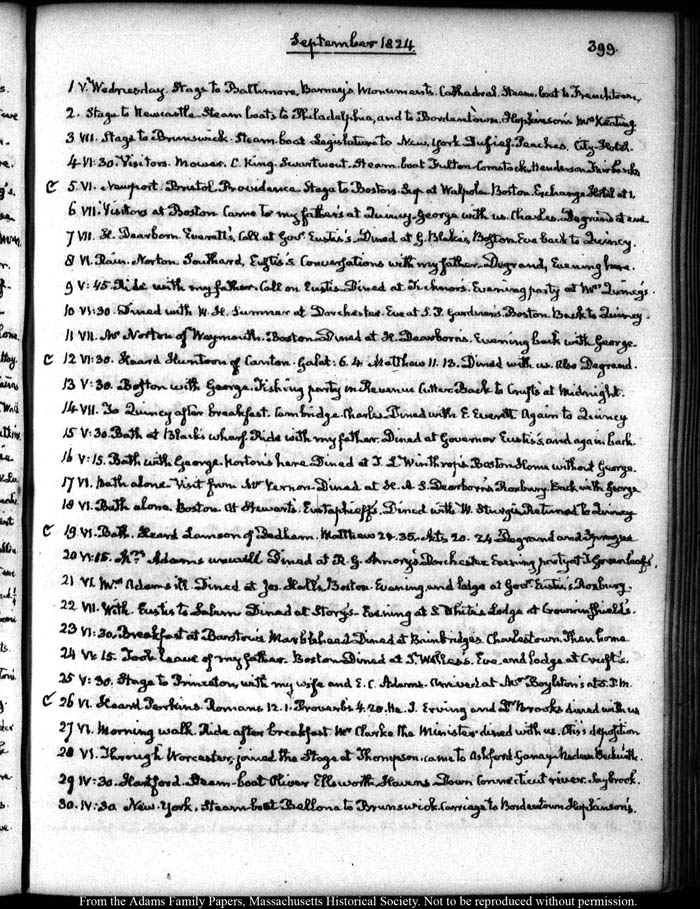 September 1824.
399.
1. V. Wednesday. Stage to Baltimore, Barney's. Monuments. Cathedral. Steam-boat to Frenchtown,
2. Stage to Newcastle. Steam boats to Philadelphia, and to Bordentown. Hopkinson's Mrs Keating
3 VII. Stage to Brunswick. Steam-boat Legislature to New-York. Dufief. Peaches. City Hotel.
4 VI:30. Visitors. Mower. C. King. Swartwout. Steam-boat Fulton. Comstock. Henderson. Fairbanks
C 5. VI. Newport. Bristol. Providence. Stage to Boston. Sup. at Walpole. Boston. Exchange Hotel at 1.
6 VII. Visitors at Boston. Came to my father's at Quincy. George with us. Charles. Degrand at eve
7 VII. H. Dearborn. Everett's, Call at Govr. Eustis's. Dined at G. Blake's, Boston. Eve back to Quincy.
8 VI. Rain. Norton. Southard, Eustis's Conversations with my father. Degrand, Evening here.
9 V:45. Ride with my father. Call on Eustis. Dined at Ticknors. Evening party at Mrs Quincy's.
10 VI:30. Dined with W. H. Sumner at Dorchester. Eve at S. P. Gardner's. Boston. Back to Quincy.
11 VII. Mr Norton of Weymouth. Boston. Dined at H. Dearborns. Evening back with George
C 12 VI:30. Heard Huntoon of Canton. Galat: 6. 4. Matthew 11. 13. Dined with us. Also Degrand.
13 V:30. Boston with George. Fishing party in Revenue Cutter. Back to Crufts at Midnight.
14 VII. To Quincy after breakfast. Cambridge. Charles. Dined with E. Everett. Again to Quincy
15 V:30. Bath at Black's wharf. Ride with my father. Dined at Governor Eustis's, and again back.
16 V:15. Bath with George. Norton's here. Dined at T. L. Winthrop's. Boston. Home without George.
17 VI. Bath alone. Visit from Mr Vernon. Dined at H. A. S. Dearborn's Roxbury. Back with George
18 VI. Bath alone. Boston. At Stewart's. Eustaphieff's. Dined with W. Sturgis. Returned to Quincy
C 19 VI. Bath. Heard Lamson of Dedham. Matthew 24. 35. Acts 20. 24. Degrand and Sprague
20 VI:15. Mrs Adams unwell. Dined at R. G. Amory's Dorchester. Evening party at T. Greenleaf's,
21 VI. Mrs Adams ill. Dined at Jos. Hall's Boston. Evening and lodge at Govr. Eustis's Roxbury.
22 VII. With Eustis to Salem. Dined at Story's. Evening at S. White's. Lodge at Crowninshield's.
23 VI:30. Breakfast at Barstow's Marblehead. Dined at Bainbridges. Charlestown. Then home
24 VI:15. Took leave of my father. Boston. Dined at T. Welles's. Eve and lodge at Cruft's.
25 V:30. Stage to Princeton, with my wife and E. C. Adams. Arrived at Mrs Boylston's at 5. P.M.
C 26 VI. Heard Perkins. Romans 12. 1. Proverbs 4. 20. He. I. Erving and Dr Brooks dined with us
27 VI. Morning walk. Ride after breakfast. Mr Clarke the Minister dined with us. Otis's deposition
28 VI. Through Worcester, joined the Stage at Thompson. came to Ashford.
29 IV:30. Hartford. Steam-boat Oliver Ellsworth. Havens. Down Connecticut river. Saybrook.
30. IV:30. New-York. Steam-boat Bellona to Brunswick. Carriage to Bordentown. Hopkinson's.
From the Adams Family Papers, Massachusetts Historical Society. Not to be reproduced without permission.